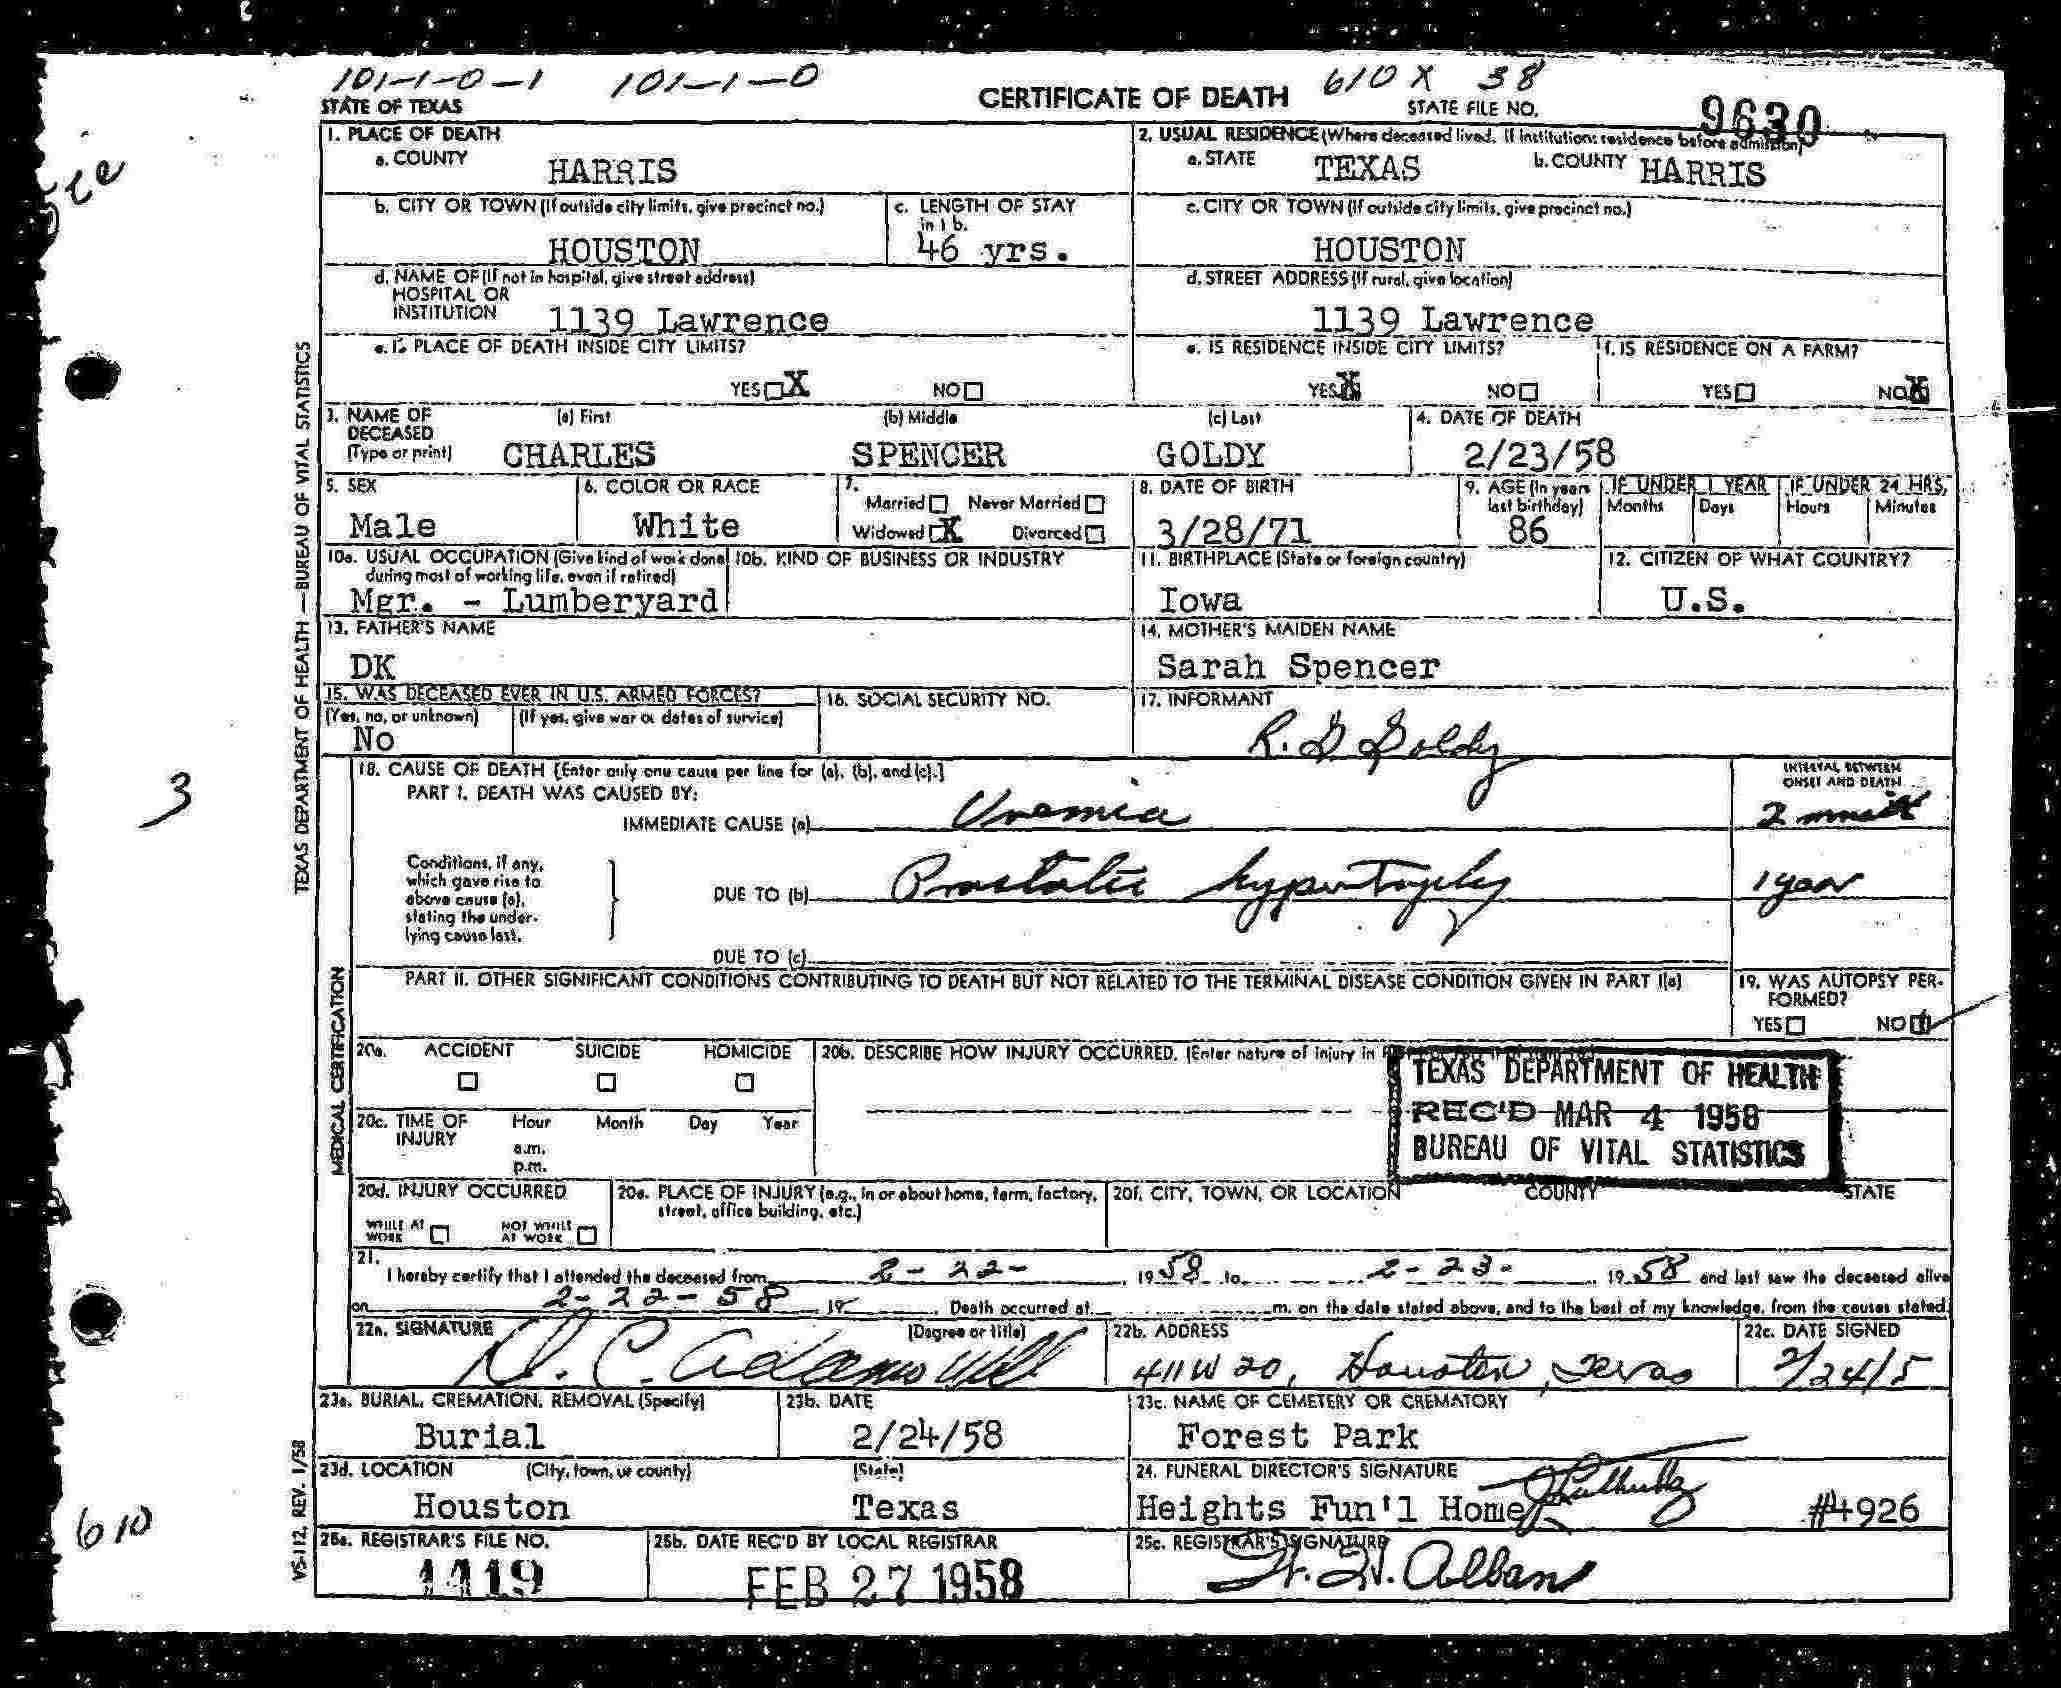 101-1-0-1 101-1-0 610 X 38
STATE OF TEXAS CERTIFICATE OF DEATH STATE FILE NO. 9630
1. PLACE OF DEATH 2. USUAL RESIDENCE (Where deceased lived. If institution: residence before admission)
a. COUNTY HARRIS a. STATE TEXAS b. COUNTY HARRIS
b. CITY OR TOWN (If outside city limits, give precinct no.) c. LENGTH OF STAY in 1 b. c. CITY OR TOWN (If outside city limits, give precinct no.)
HOUSTON 46 yrs. HOUSTON
d. NAME OF (If not in hospital, give street address) d. STREET ADDRESS (If rural, give location)
HOSPITAL OR
INSTITUTION 1139 Lawrence 1139 Lawrence
e. IS PLACE OF DEATH INSIDE CITY LIMITS? e. IS RESIDENCE INSIDE CITY LIMITS? f. IS RESIDENCE ON A FARM?
YES X NO YES X NO YES NO X
3. NAME OF DECEASED (a) First (b) Middle (c) Last 4. DATE OF DEATH
(Type or print) CHARLES SPENCER GOLDY 2/23/58
5. SEX 6. COLOR OR RACE 7. Married Never Married 8. DATE OF BIRTH 9. AGE (In years last birthday) IF UNDER 1 YEAR IF UNDER 24 HRS.
Months Days Hours Minutes
Male White Widowed X Divorced 3/28/71 86
10a. USUAL OCCUPATION (Give kind of work done during most of working life, even if retired) 10b. KIND OF BUSINESS OR INDUSTRY 11. BIRTHPLACE (State or foreign country) 12. CITIZEN OF WHAT COUNTRY?
Mgr. - Lumberyard Iowa U.S.
13. FATHER'S NAME 14. MOTHER'S MAIDEN NAME
DK Sarah Spencer
15. WAS DECEASED EVER IN U.S. ARMED FORCES? 16. SOCIAL SECURITY NO. 17. INFORMANT
(Yes, no, or unknown) (If yes, give war or dates of service)
No R. G Goldy
18. CAUSE OF DEATH [Enter only one cause per line for (a), (b), and (c).] INTERVAL BETWEEN ONSET AND DEATH
PART I. DEATH WAS CAUSED BY:
IMMEDIATE CAUSE (a) Uremia 2
Conditions, if any, which gave rise to above cause (a), stating the underlying cause last.
DUE TO (b) Prostatic hypertrophy 1 year
DUE TO (c)
PART II. OTHER SIGNIFICANT CONDITIONS CONTRIBUTING TO DEATH BUT NOT RELATED TO THE TERMINAL DISEASE CONDITION GIVEN IN PART I(a) 19. WAS AUTOPSY PERFORMED?
YES NO
20a. ACCIDENT SUICIDE HOMICIDE 20b. DESCRIBE HOW INJURY OCCURRED. (Enter nature of injury in
TEXAS DEPARTMENT OF HEALTH
REC'D MAR 4 1958
BUREAU OF VITAL STATISTICS
20c. TIME OF INJURY Hour Month Day Year
a.m.
p.m.
20d. INJURY OCCURRED 20e. PLACE OF INJURY (e.g., in or about home, farm, factory, street, office building, etc.) 20f. CITY, TOWN, OR LOCATION COUNTY STATE
WHILE AT WORK NOT WHILE AT WORK
21.
I hereby certify that I attended the deceased from 2-22- 19 58 to 2-23- 19 58 and last saw the deceased alive
on 2-22-58 19 . Death occurred at m. on the date stated above, and to the best of my knowledge, from the causes stated.
22a. SIGNATURE (Degree or title) 22b. ADDRESS 22c. DATE SIGNED
D. C. Adams MD 411 W 20, Houston, Texas 2/24/5
23a. BURIAL, CREMATION, REMOVAL (Specify) 23b. DATE 23c. NAME OF CEMETERY OR CREMATORY
Burial 2/24/58 Forest Park
23d. LOCATION (City, town, or county) (State) 24. FUNERAL DIRECTOR'S SIGNATURE
Houston Texas Heights Fun'l Home #4926
25a. REGISTRAR'S FILE NO. 25b. DATE REC'D BY LOCAL REGISTRAR 25c. REGISTRAR'S SIGNATURE
1419 FEB 27 1958 H. W. Alban
TEXAS DEPARTMENT OF HEALTH — BUREAU OF VITAL STATISTICS
MEDICAL CERTIFICATION
VS-112, REV. 1/58
3
610